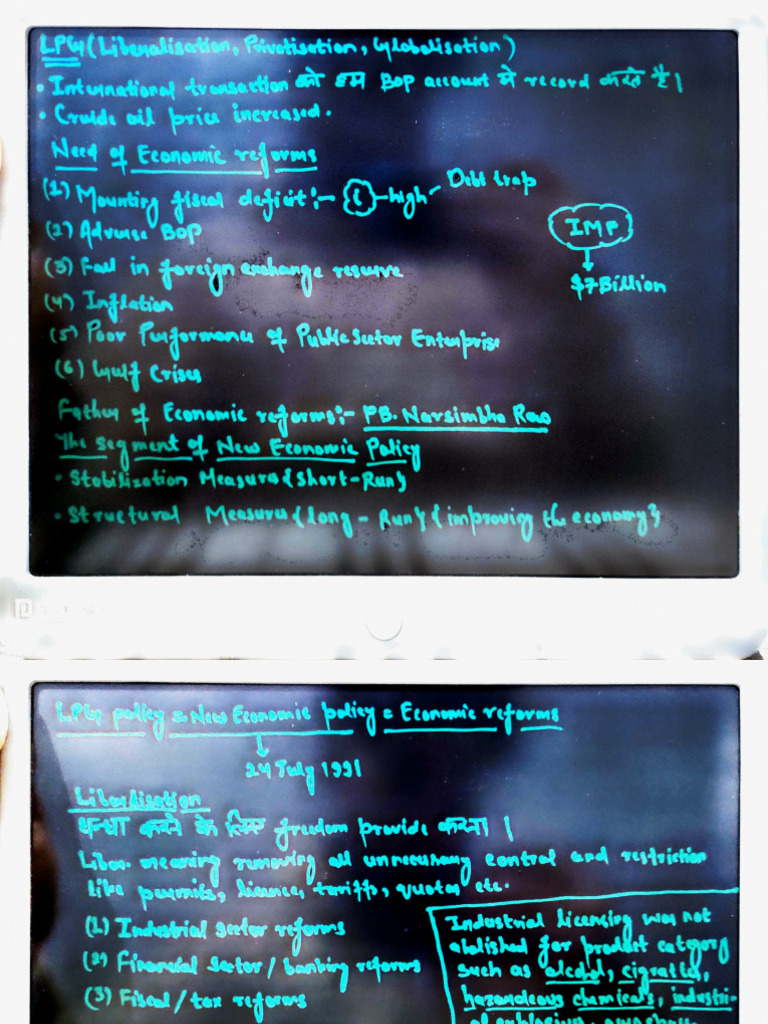 LPG (Liberalisation, Privatisation, Globalisation)
• International transaction को हम BOP account में record करते हैं।
• Crude oil price increased.
Need of Economic reforms
(1) Mounting fiscal deficit:- high - Debt trap
IMF
↓
$7 Billion
(2) Adverse BOP
(3) Fall in foreign exchange reserve
(4) Inflation
(5) Poor Performance of Public Sector Enterprise
(6) Gulf Crises
Father of Economic reforms:- PB. Narsimbha Rao
The Segment of New Economic Policy
• Stabilization Measures {Short-Run}
• Structural Measures {Long - Run} {improving the economy}
LPG policy = New Economic policy = Economic reforms
↓
24 July 1991
Liberalisation
धन्धा करने के लिए freedom provide करना।
Liber. meaning removing all unnecessary control and restriction
like permits, licence, tariffs, quotas etc.
(1) Industrial sector reforms
(2) Financial Sector / banking reforms
(3) Fiscal / tax reforms
Industrial licencing was not
abolished for product category
such as alcohol, cigratte,
hazandeous chemicals, industri-
al explosives,